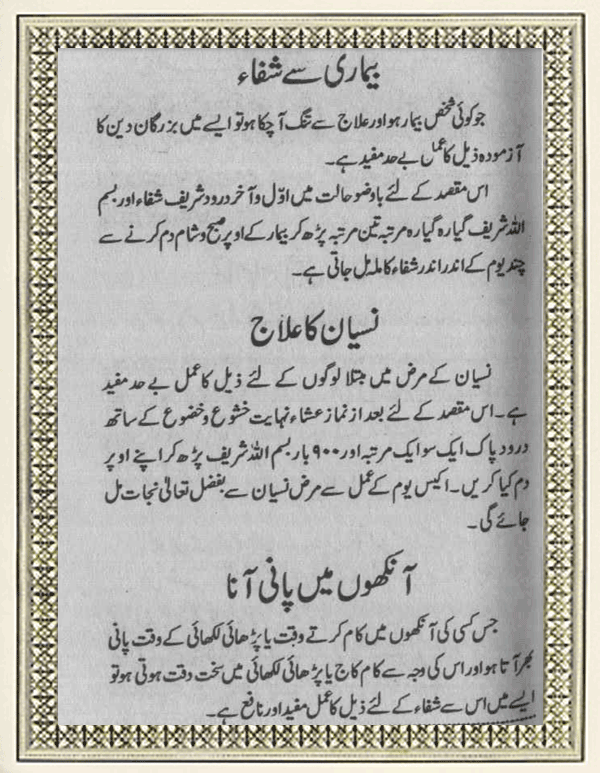 بیماری سے شفاء
جو کوئی شخص بیمار ہو اور علاج سے تنگ آ چکا ہو تو ایسے میں بزرگان دین کا
آزمودہ ذیل کا عمل بے حد مفید ہے۔
اس مقصد کے لئے باوضو حالت میں اوّل و آخر درود شریف شفاء اور بسم
اللہ شریف گیارہ گیارہ مرتبہ تین مرتبہ پڑھ کر بیمار کے اوپر صبح و شام دم کرنے سے
چند یوم کے اندر اندر شفاء کاملہ مل جاتی ہے۔
نسیان کا علاج
نسیان کے مرض میں مبتلا لوگوں کے لئے ذیل کا عمل بے حد مفید
ہے۔ اس مقصد کے لئے بعد از نماز عشاء نہایت خشوع و خضوع کے ساتھ
درود پاک ایک سو ایک مرتبہ اور ۹۰۰ بار بسم اللہ شریف پڑھ کر اپنے اوپر
دم کیا کریں۔ اکیس یوم کے عمل سے مرض نسیان سے بفضل تعالیٰ نجات مل
جائے گی۔
آنکھوں میں پانی آنا
جس کسی کی آنکھوں میں کام کرتے وقت یا پڑھائی لکھائی کے وقت پانی
بھر آتا ہو اور اس کی وجہ سے کام کاج یا پڑھائی لکھائی میں سخت دقت ہوتی ہو تو
ایسے میں اس سے شفاء کے لئے ذیل کا عمل مفید اور نافع ہے۔